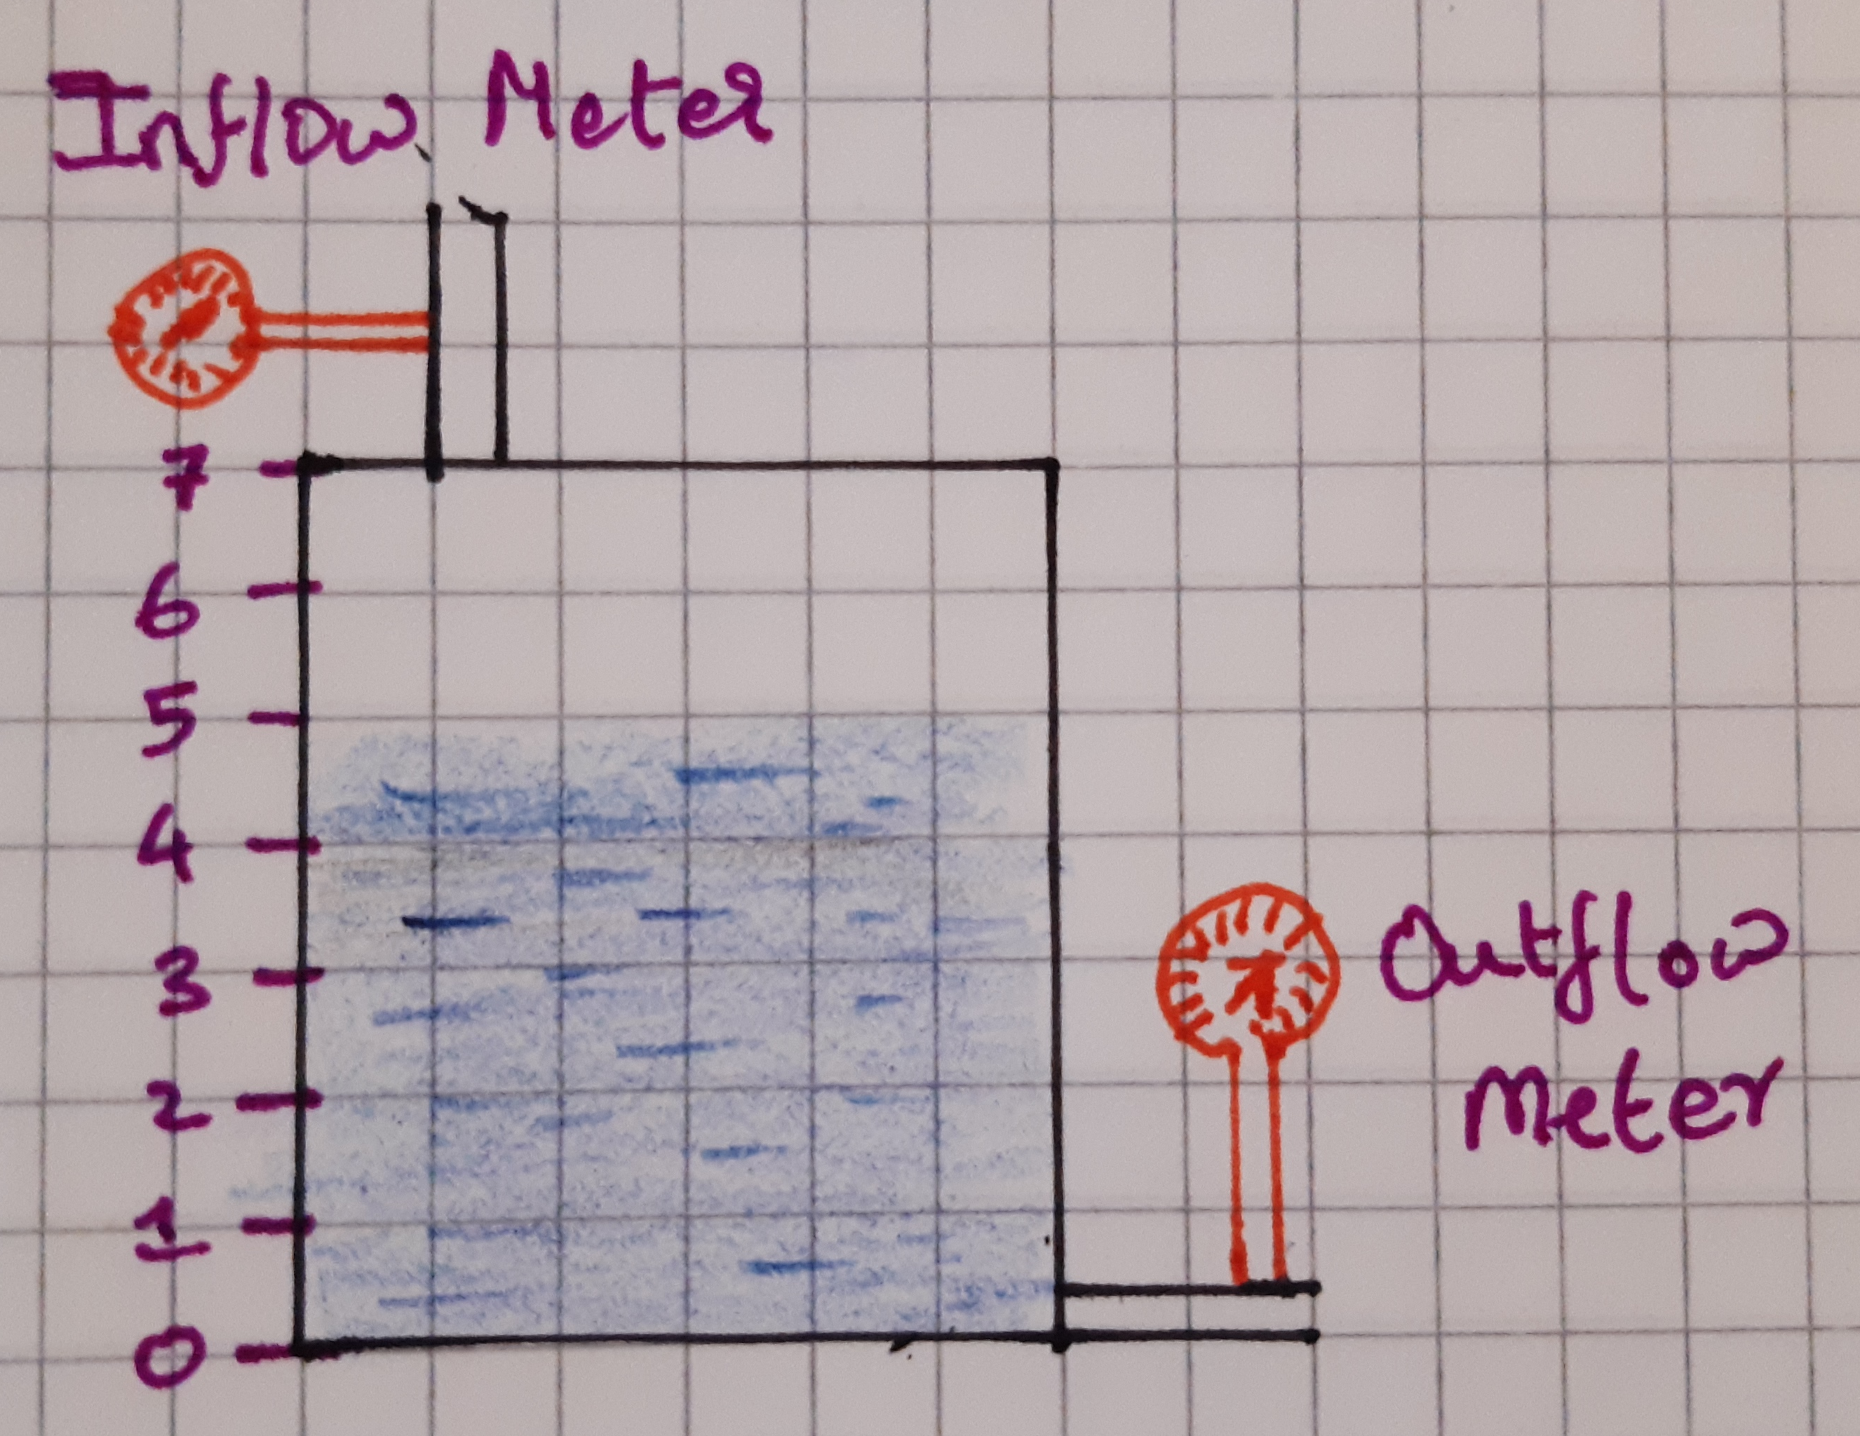 Inflow Meter
7
6
5
4
3
2
1
0
Outflow
Meter